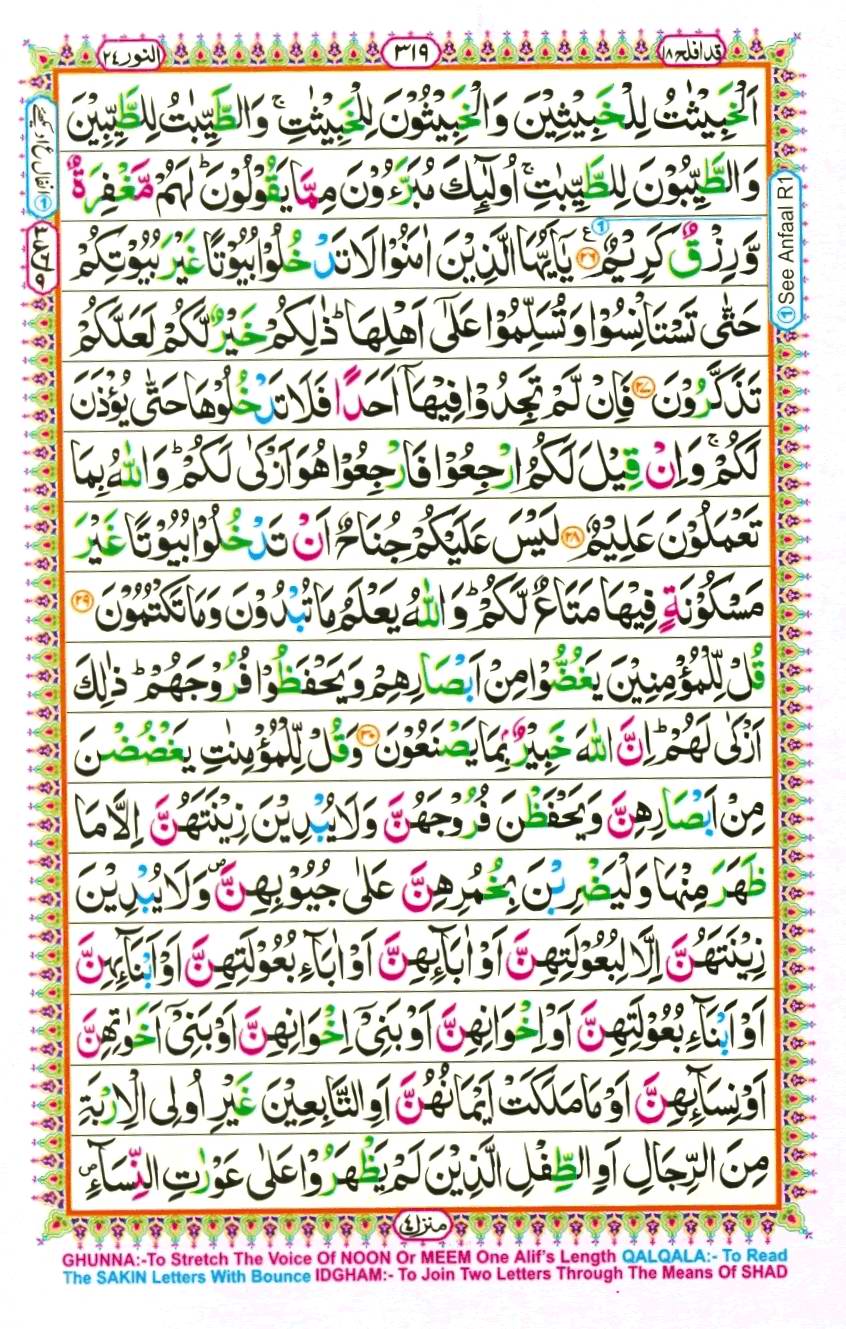 قد افلح ١٨
٣١٩
النور ٢٤
اَلْخَبِيْثٰتُ لِلْخَبِيْثِيْنَ وَالْخَبِيْثُوْنَ لِلْخَبِيْثٰتِ ۚ وَالطَّيِّبٰتُ لِلطَّيِّبِيْنَ
وَالطَّيِّبُوْنَ لِلطَّيِّبٰتِ ۚ اُولٰٓئِكَ مُبَرَّءُوْنَ مِمَّا يَقُوْلُوْنَ ؕ لَهُمْ مَّغْفِرَةٌ
وَّرِزْقٌ كَرِيْمٌ ۟۲۶ ع يٰۤاَيُّهَا الَّذِيْنَ اٰمَنُوْا لَا تَدْخُلُوْا بُيُوْتًا غَيْرَ بُيُوْتِكُمْ
حَتّٰى تَسْتَاْنِسُوْا وَتُسَلِّمُوْا عَلٰۤى اَهْلِهَا ؕ ذٰلِكُمْ خَيْرٌ لَّكُمْ لَعَلَّكُمْ
تَذَكَّرُوْنَ ۲۷ فَاِنْ لَّمْ تَجِدُوْا فِيْهَاۤ اَحَدًا فَلَا تَدْخُلُوْهَا حَتّٰى يُؤْذَنَ
لَكُمْ ۚ وَاِنْ قِيْلَ لَكُمُ ارْجِعُوْا فَارْجِعُوْا هُوَ اَزْكٰى لَكُمْ ؕ وَاللّٰهُ بِمَا
تَعْمَلُوْنَ عَلِيْمٌ ۲۸ لَيْسَ عَلَيْكُمْ جُنَاحٌ اَنْ تَدْخُلُوْا بُيُوْتًا غَيْرَ
مَسْكُوْنَةٍ فِيْهَا مَتَاعٌ لَّكُمْ ؕ وَاللّٰهُ يَعْلَمُ مَا تُبْدُوْنَ وَمَا تَكْتُمُوْنَ ۲۹
قُلْ لِّلْمُؤْمِنِيْنَ يَغُضُّوْا مِنْ اَبْصَارِهِمْ وَيَحْفَظُوْا فُرُوْجَهُمْ ؕ ذٰلِكَ
اَزْكٰى لَهُمْ ؕ اِنَّ اللّٰهَ خَبِيْرٌۢ بِمَا يَصْنَعُوْنَ ۳۰ وَقُلْ لِّلْمُؤْمِنٰتِ يَغْضُضْنَ
مِنْ اَبْصَارِهِنَّ وَيَحْفَظْنَ فُرُوْجَهُنَّ وَلَا يُبْدِيْنَ زِيْنَتَهُنَّ اِلَّا مَا
ظَهَرَ مِنْهَا وَلْيَضْرِبْنَ بِخُمُرِهِنَّ عَلٰى جُيُوْبِهِنَّ ۪ وَلَا يُبْدِيْنَ
زِيْنَتَهُنَّ اِلَّا لِبُعُوْلَتِهِنَّ اَوْ اٰبَآئِهِنَّ اَوْ اٰبَآءِ بُعُوْلَتِهِنَّ اَوْ اَبْنَآئِهِنَّ
اَوْ اَبْنَآءِ بُعُوْلَتِهِنَّ اَوْ اِخْوَانِهِنَّ اَوْ بَنِيْۤ اِخْوَانِهِنَّ اَوْ بَنِيْۤ اَخَوٰتِهِنَّ
اَوْ نِسَآئِهِنَّ اَوْ مَا مَلَكَتْ اَيْمَانُهُنَّ اَوِ التّٰبِعِيْنَ غَيْرِ اُولِى الْاِرْبَةِ
مِنَ الرِّجَالِ اَوِ الطِّفْلِ الَّذِيْنَ لَمْ يَظْهَرُوْا عَلٰى عَوْرٰتِ النِّسَآءِ ۪
① See Anfaal R1
منزل ٤
GHUNNA:-To Stretch The Voice Of NOON Or MEEM One Alif's Length QALQALA:- To Read
The SAKIN Letters With Bounce IDGHAM:- To Join Two Letters Through The Means Of SHAD